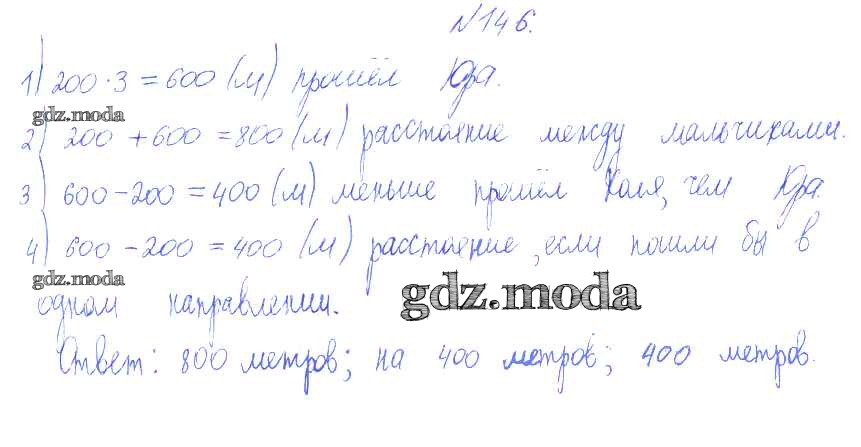 №146.
1) 200 · 3 = 600 (м) прошёл Юра.
gdz.moda
2) 200 + 600 = 800 (м) расстояние между мальчиками.
3) 600 - 200 = 400 (м) меньше прошёл Коля, чем Юра.
4) 600 - 200 = 400 (м) расстояние, если пошли бы в
gdz.moda
одном направлении.
gdz.moda
Ответ: 800 метров; на 400 метров; 400 метров.